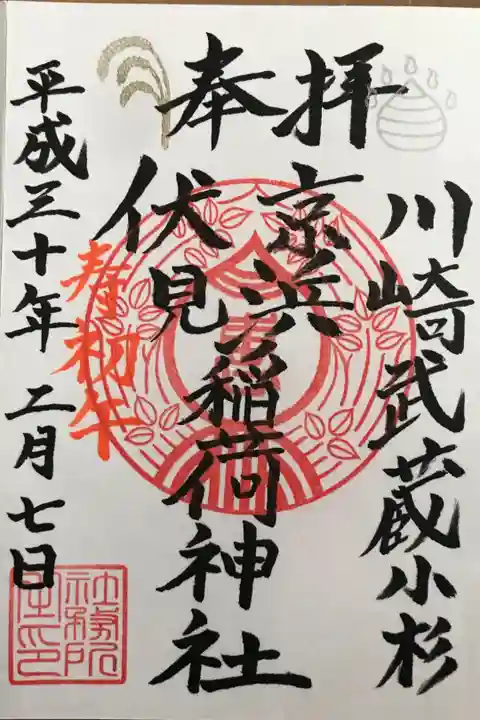 奉拝
川崎武蔵小杉
京浜
伏見
稲荷神社
平成三十年 二月七日
奉祝初午
社務所
之印